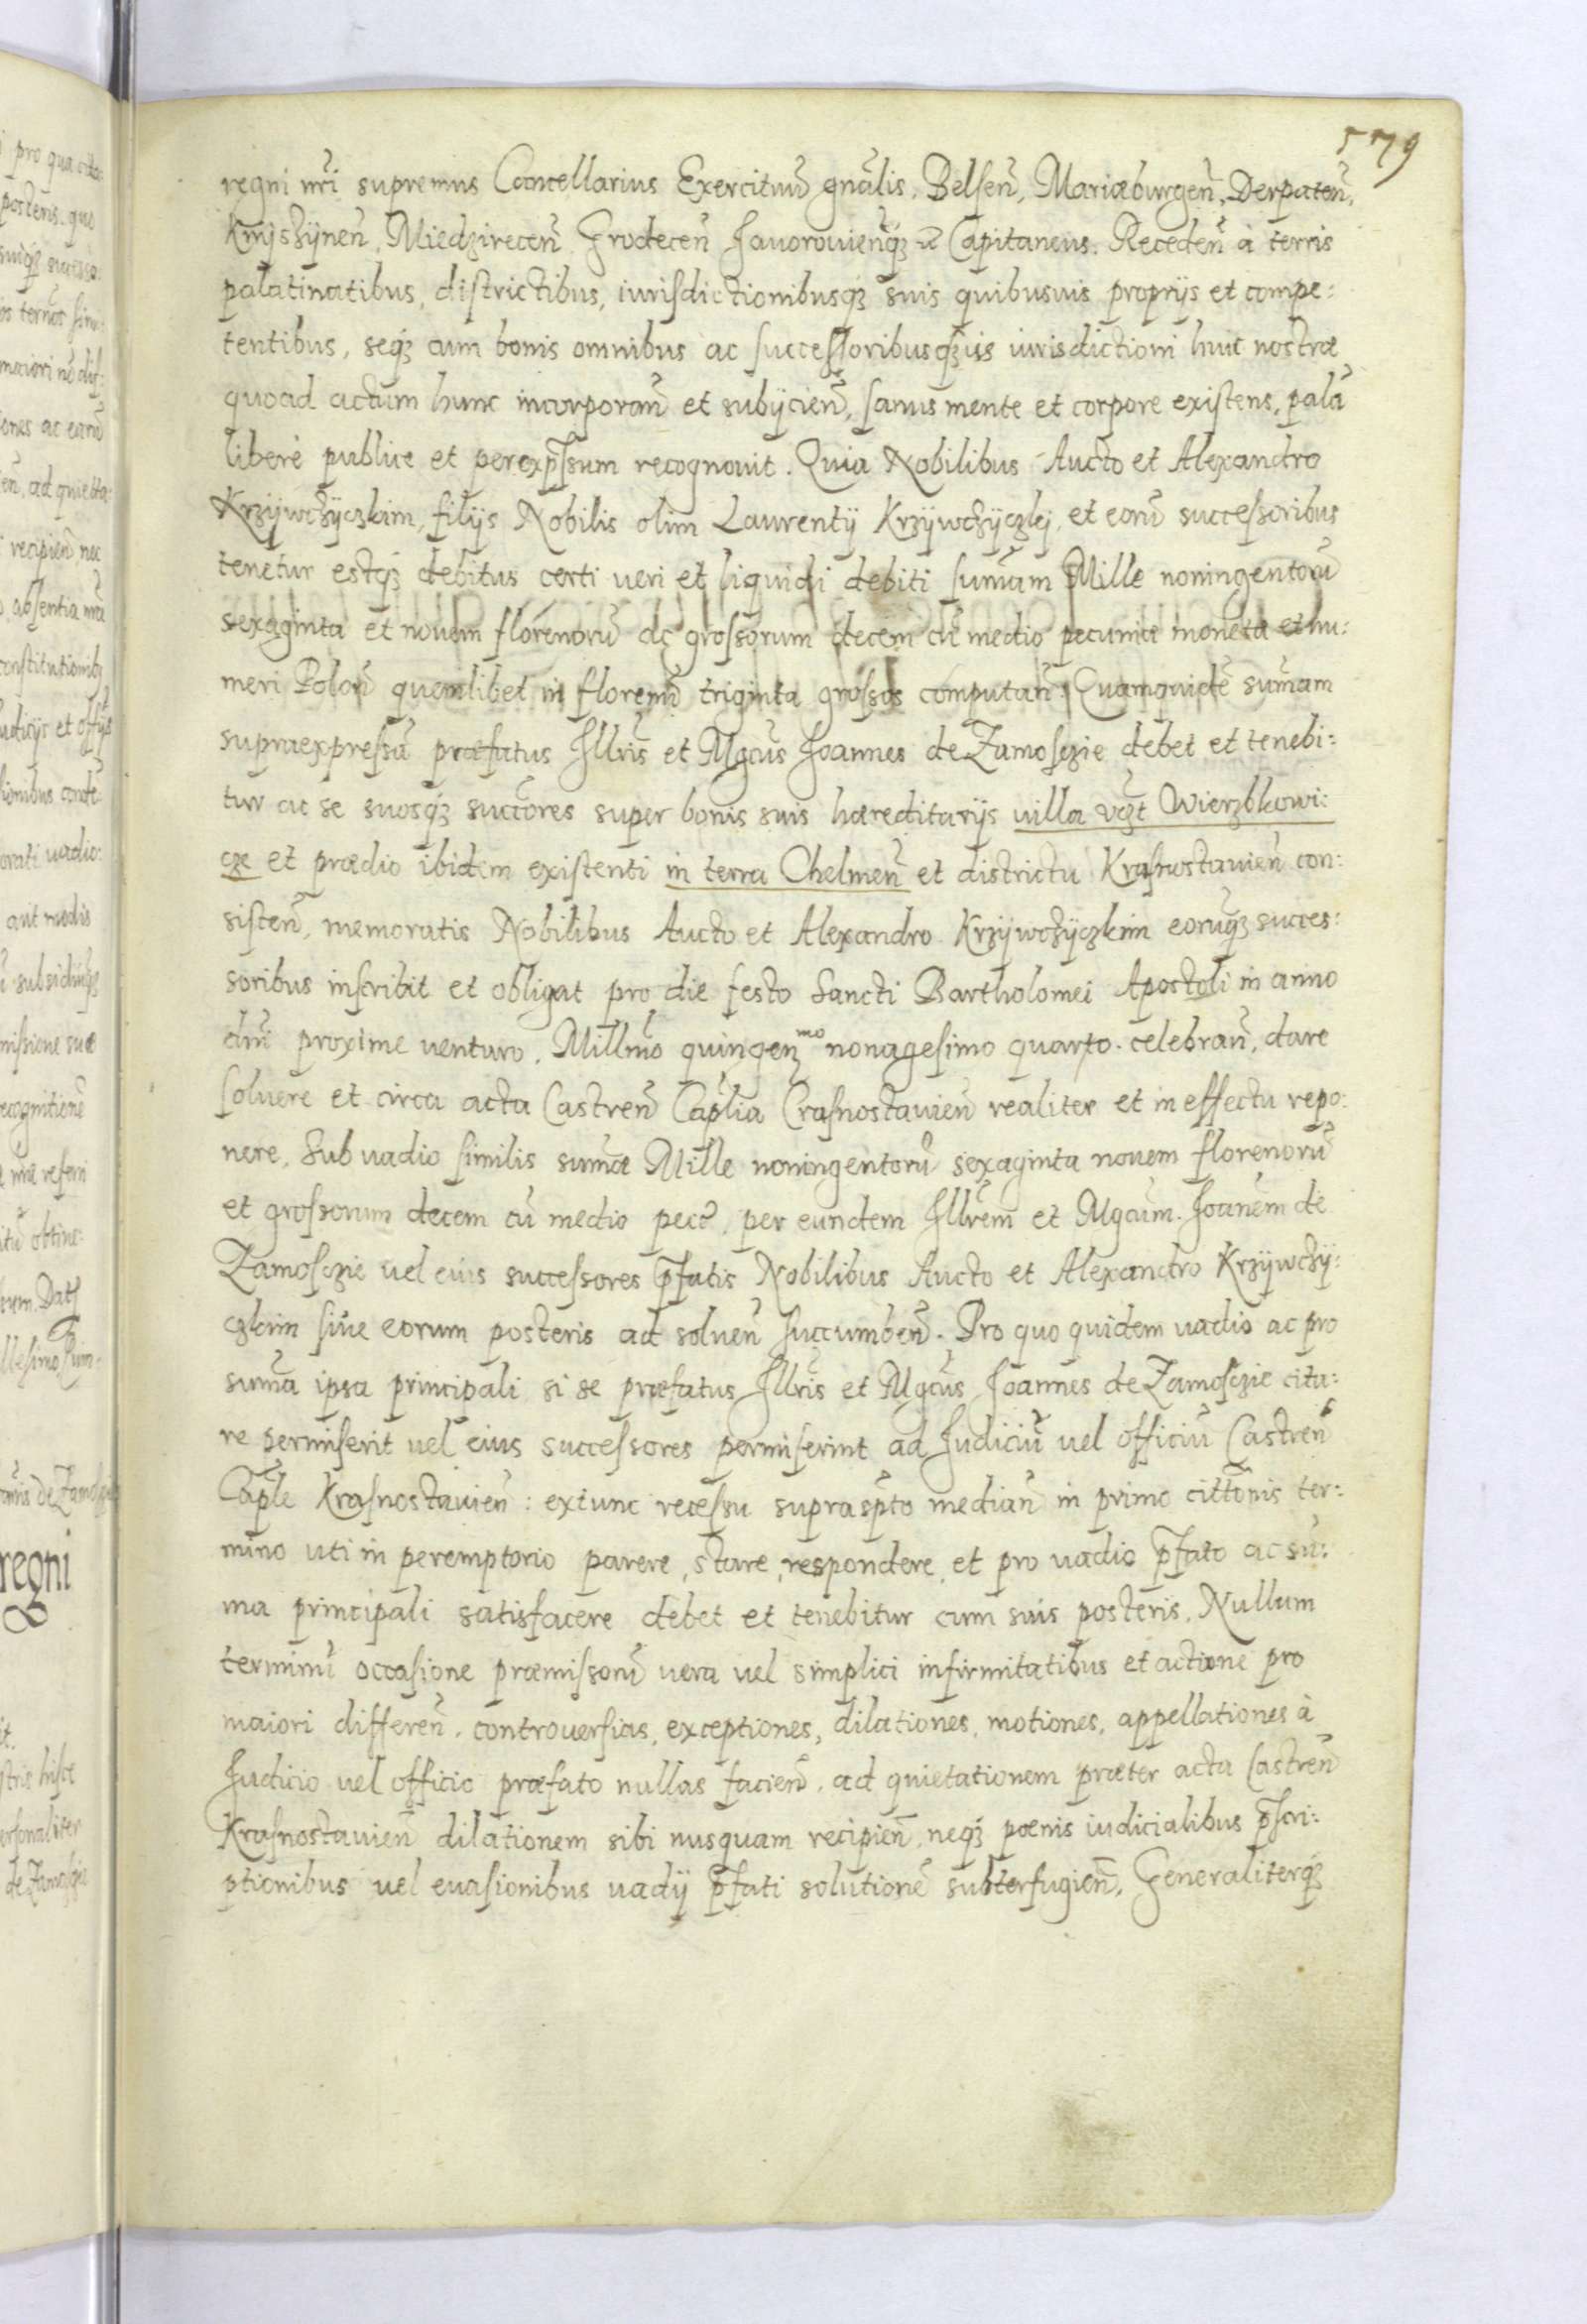 579
regni nr̃i supremus Cancellarius Exercituũ gnãlis, Belsen̄, Mariæburgen̄, Derpaten̄,
Knÿschÿnen̄, Miedzirecen̄ Grodecen̄ Jauorouien̄q́ꝫ ⁊c̃ Capitaneus. Receden̄ à terris
palatinatibus, districtibus, iurisdictionibusq́ꝫ suis quibusuis proprijs et compe:
tentibus, seq́ꝫ cum bonis omnibus ac successoribusq́ꝫ iis iurisdictioni huic nostræ
quoad actum hunc incorporan̄ et subijcien̄, sanus mente et corpore existens, palã
liberè publice et per exp̃ssum recognouit. Quia Nobilibus Aucto et Alexandro
Krzÿwczÿczkim, filijs Nobilis olim Laurentÿ Krzÿwczÿczkj, et eorũ successoribus
tenetur estq́ꝫ debitus certi ueri et liquidi debiti sum̃am Mille noningentorũ
sexaginta et nouem florenorũ ac grossorum decem cũ medio pecuniæ moneta et nu:
meri Polon̄ quemlibet in florenũ triginta grossos computan̄. Quamquidẽ sum̃am
supraexpressã præfatus Jllr̃is et Mg̃cus Joannes de Zamosczie debet et tenebi:
tur ac se suosq́ꝫ succ̃ores super bonis suis hæreditarijs uilla vꝫt Wierzbkowi:
cze et prædio ibidem existenti in terra Chelmen̄ et districtu Krasnostauien̄ con:
sisten̄, memoratis Nobilibus Aucto et Alexandro Krzÿwczÿczkim eorũq́ꝫ succes:
soribus inscribit et obligat pro die festo Sancti Bartholomei Apostoli in anno
dñi proxime venturo, Millm̃o quingenmo nonagesimo quarto celebran̄, dare
soluere et circa acta Castren̄ Cap̃lia Crasnostauien̄ realiter et in effectu repo:
nere, Sub uadio similis sum̃æ Mille noningentorũ sexaginta nouem florenorũ
et grossorum decem cũ medio pec̃e, per eundem Jllr̃em et Mg̃cum Joan̄em de
Zamosczie uel eius successores p̃fatis Nobilibus Aucto et Alexandro Krzÿwczÿ:
czkim siue eorum posteris ad soluen̄ succumben̄. Pro quo quidem uadio ac pro
sum̃a ipsa principali si se præfatus Jllr̃is et Mg̃cus Joannes de Zamosczie cita:
re permiserit uel eius successores permiserint ad Judiciũ uel officiũ Castren̄
Cap̃le Krasnostauien̄: extunc recessu supraspto median̄ in primo citt̃onis ter:
mino uti in peremptorio parere, stare, respondere, et pro uadio p̃fato ac sũ:
ma principali satisfacere debet et tenebitur cum suis posteris, Nullum
terminũ occasione præmissorũ uera uel simplici infirmitatibus et actione pro
maiori differen̄, controuersias, exceptiones, dilationes, motiones, appellationes à
Judicio uel officio præfato nullas facien̄, ad quietationem præter acta Castren̄
Krasnostauien̄ dilationem sibi nusquam recipien̄, neq́ꝫ pœnis iudicialibus p̃scri:
ptionibus uel euasionibus uadij p̃fati solutionẽ subterfugien̄, Generaliterq́ꝫ